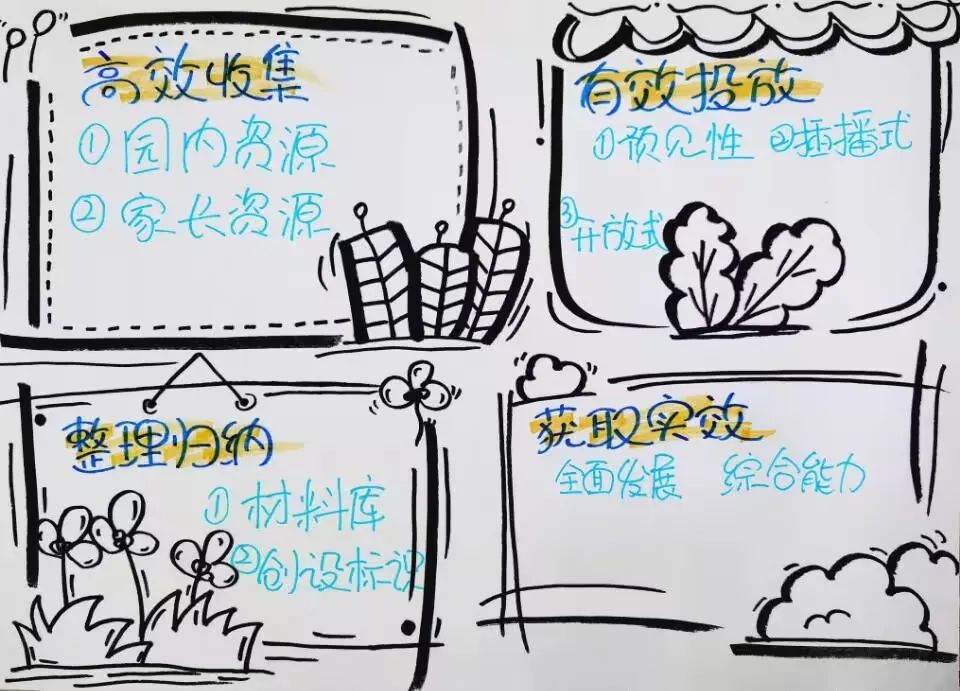 高效收集
①园内资源
②家长资源
有效投放
①预见性 ②插播式
③开放式
整理归纳
①材料库
②创设标识
获取实效
全面发展 综合能力